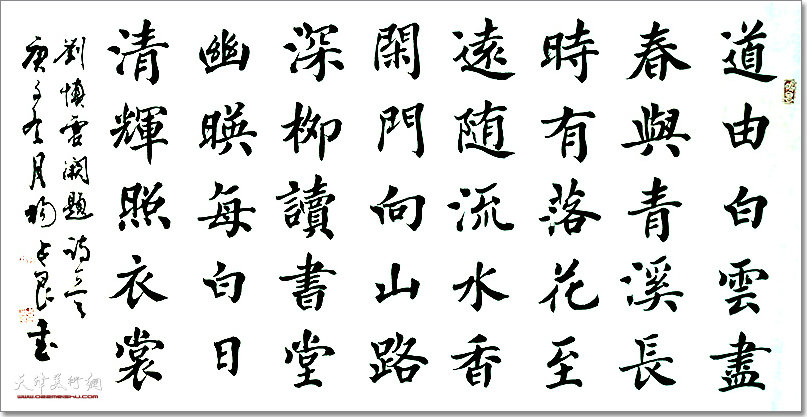 道由白雲盡
春與青溪長
時有落花至
遠随流水香
閑門向山路
深柳讀書堂
幽暎每白日
清輝照衣裳
劉慎虚闕題詩一首
庚子冬月楊書
天津美術網